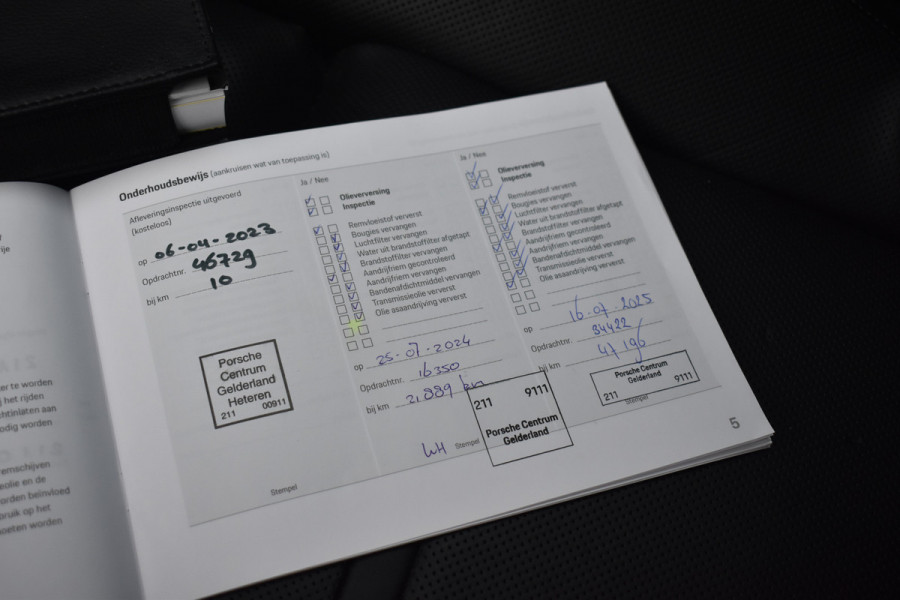 Onderhoudsbewijs (aankruisen wat van toepassing is)
Afleveringsinspectie uitgevoerd
(kosteloos)
op 06-04-2023
Opdrachtnr. 46729
bij km 10
Porsche
Centrum
Gelderland
Heteren
211 00911
Stempel
Ja / Nee
Olieverversing
Inspectie
Remvloeistof ververst
Bougies vervangen
Luchtfilter vervangen
Water uit brandstoffilter afgetapt
Brandstoffilter vervangen
Aandrijfriem gecontroleerd
Aandrijfriem vervangen
Bandenafdichtmiddel vervangen
Transmissieolie ververst
Olie asaandrijving ververst
op 25-07-2024
Opdrachtnr. 16350
bij km 21.889 km
211 9111
Porsche Centrum
Gelderland
Stempel
Ja / Nee
Olieverversing
Inspectie
Remvloeistof ververst
Bougies vervangen
Luchtfilter vervangen
Water uit brandstoffilter afgetapt
Brandstoffilter vervangen
Aandrijfriem gecontroleerd
Aandrijfriem vervangen
Bandenafdichtmiddel vervangen
Transmissieolie ververst
Olie asaandrijving ververst
op 16-07-2025
Opdrachtnr. 34422
bij km 47196
Porsche Centrum
Gelderland
211 9111
Stempel
5
er te worden
ij het rijden
chtinlaten aan
odig worden
emschijven
eolie en de
orden beïnvloed
bruik op het
moeten worden